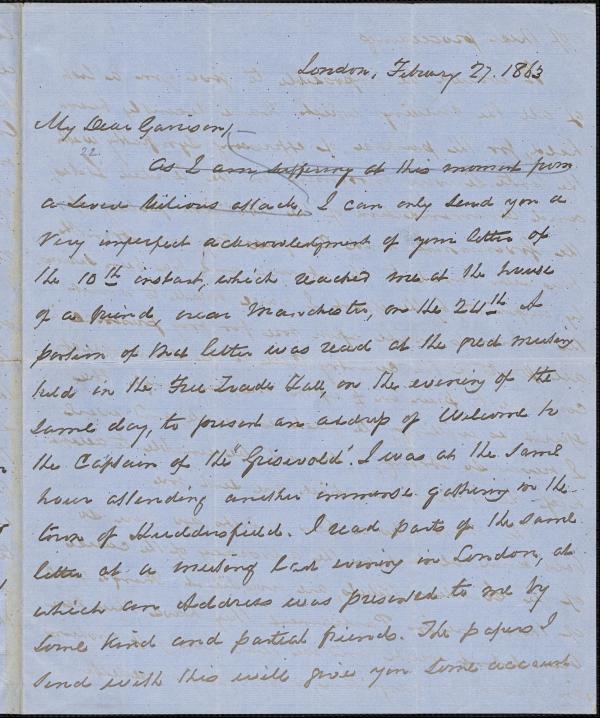 London, February 27. 1863
My Dear Garrison,
22
As I am suffering at this moment from
a severe bilious attack, I can only send you a
very imperfect acknowledgment of your letter of
the 10th instant, which reached me at the house
of a friend, near Manchester, on the 24th. A
portion of that letter was read at the great meeting
held in the Free Trade Hall, on the evening of the
same day, to present an address of welcome to
the Captain of the "Griswold". I was at the same
hour attending another immense gathering in the
town of Huddersfield. I read parts of the same
letter at a meeting last evening in London, at
which an Address was presented to me by
some kind and partial friends. The papers I
send with this will give you some account